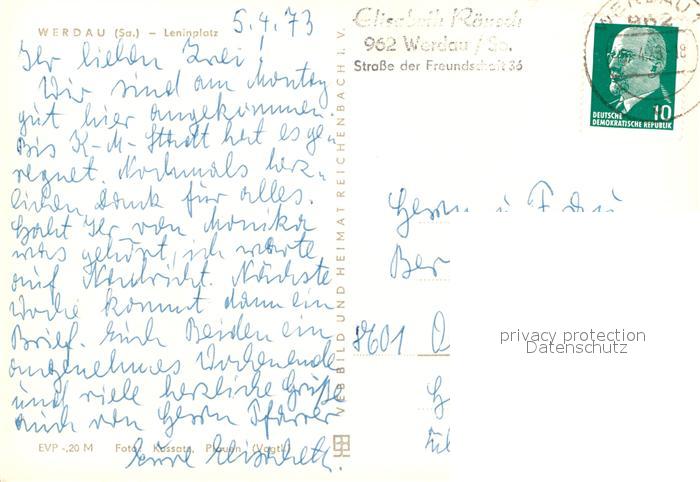 WERDAU (Sa.) – Leninplatz
5.4.73
Ihr lieben Zwei!
Wir sind am Montag
gut hier angekommen.
Bis K-M-Stadt hat es ge-
regnet. Nochmals herz-
lichen Dank für alles.
Habt Ihr von Monika
was gehört, ich warte
auf Nachricht. Nächste
Woche kommt dann ein
Brief. Euch Beiden ein
angenehmes Wochenende
und viele herzliche Grüße
auch von Herrn Pfarrer
Eure Elisabeth.
EVP -,20 M Foto: Kossatz, Plauen (Vogtl.)
VEB BILD UND HEIMAT REICHENBACH i. V.
Elisabeth Räusch
962 Werdau / Sa.
Straße der Freundschaft 36
WERDAU
962
DEUTSCHE
DEMOKRATISCHE REPUBLIK
10
Herrn u Frau
Ber
8601
privacy protection
Datenschutz